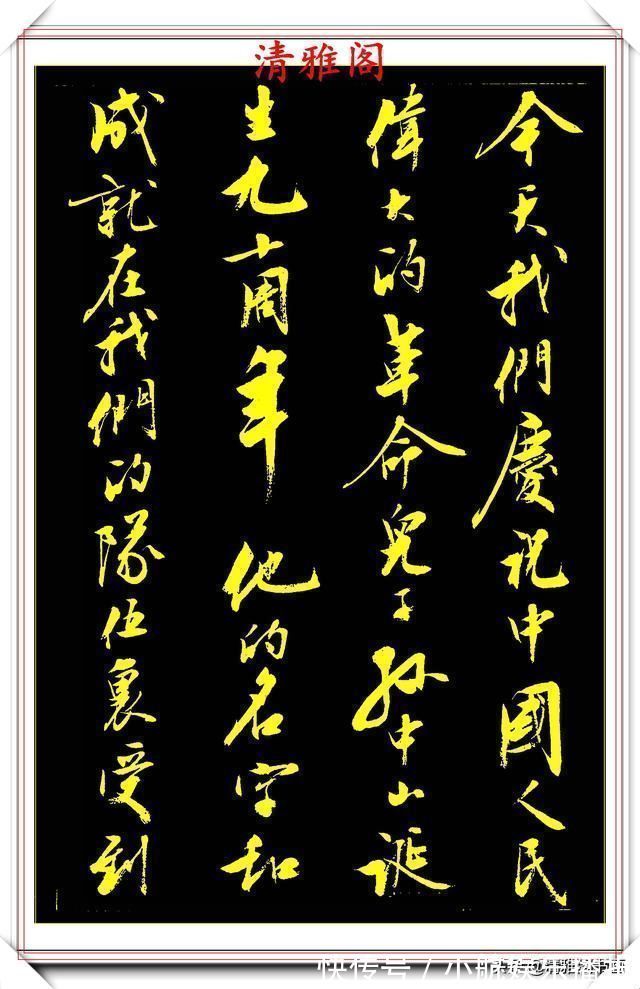 清雅阁
今天我們慶祝中國人民
偉大的革命兒子孫中山誕
生九十周年 他的名字和
成就在我們的隊伍裏受到
快传号/小
@清雅